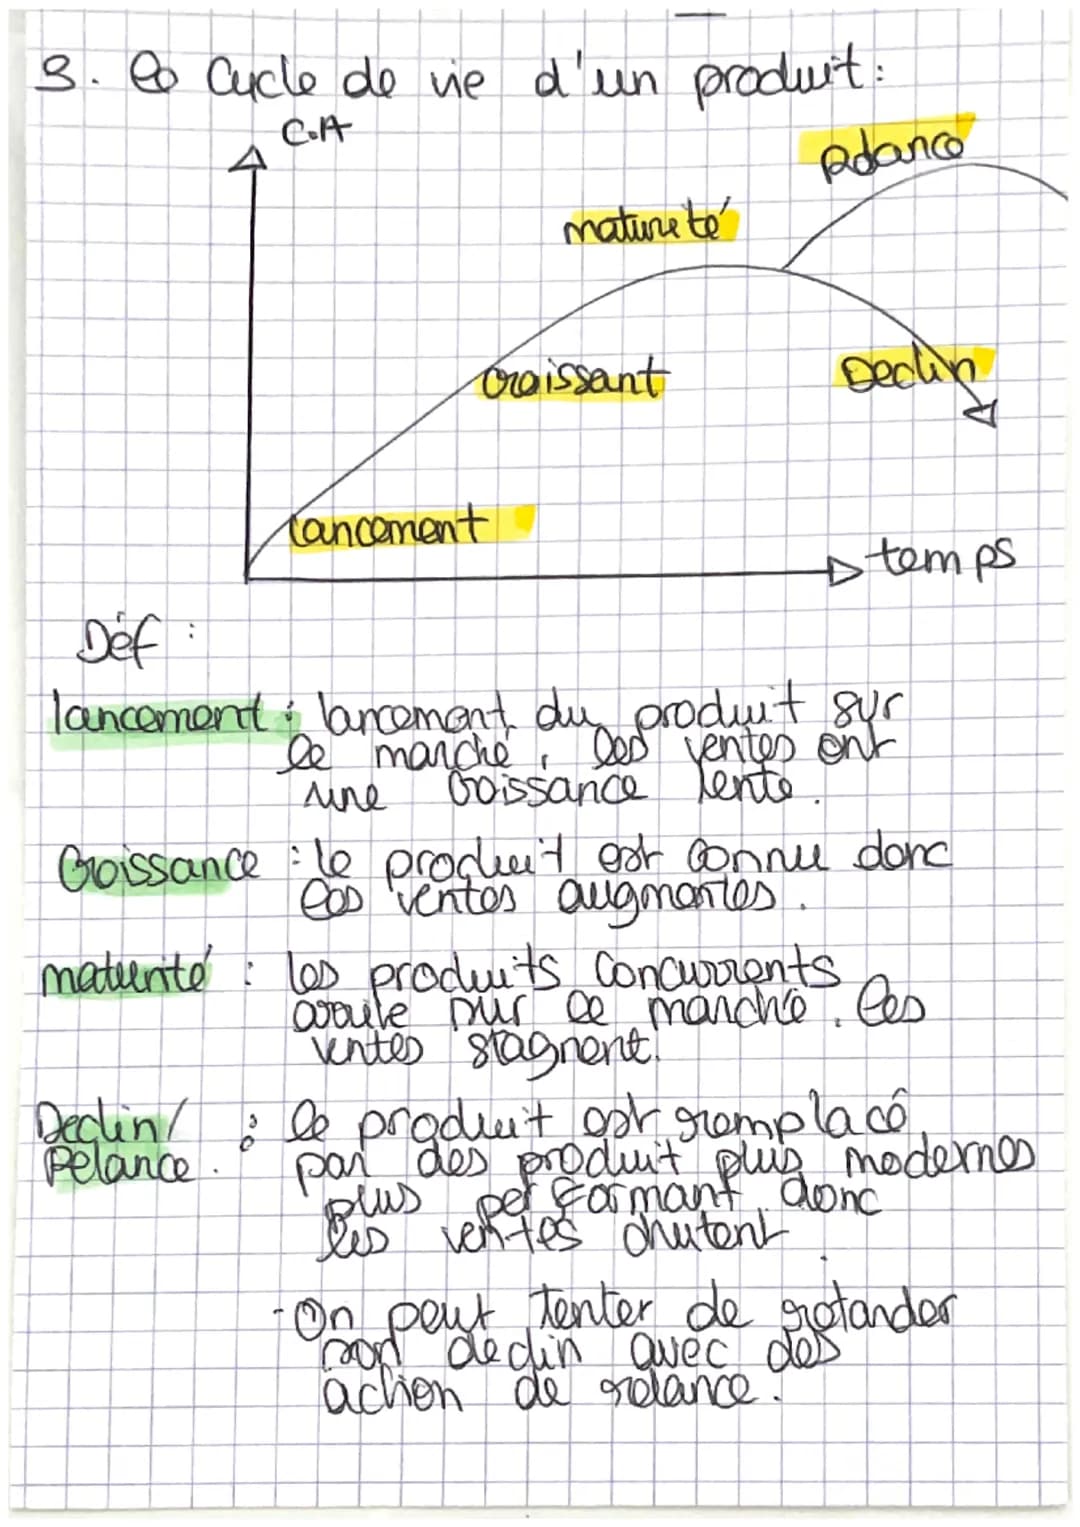 3. le Cycle de vie d'un produit :
C.A
relance
maturité
croissant
Declin
lancement
temps
Déf :
lancement : lancement du produit sur
le marché, les ventes ont
une croissance lente.
Croissance : le produit est connu donc
les ventes augmentes.
maturité : les produits concurrents
sur le marché. les
ventes stagnent.
Declin/ : le produit est remplacé
Relance. par des produit plus modernes
plus performant donc
les ventes chutent
- On peut tenter de retarder
son declin avec des
action de relance.